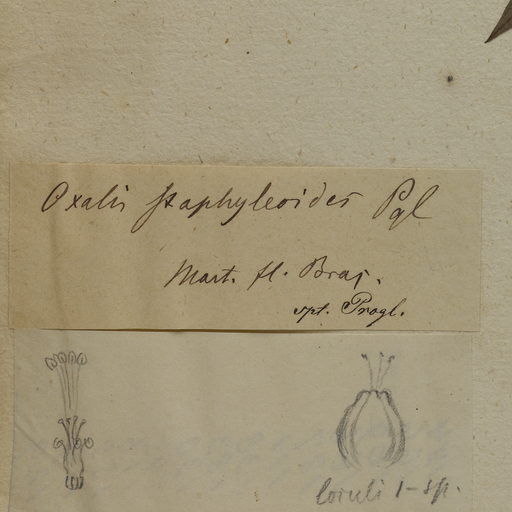 Oxalis staphyleoides Pgl
Mart. fl. Bras.
spt. Progl.
loculi 1-sp.